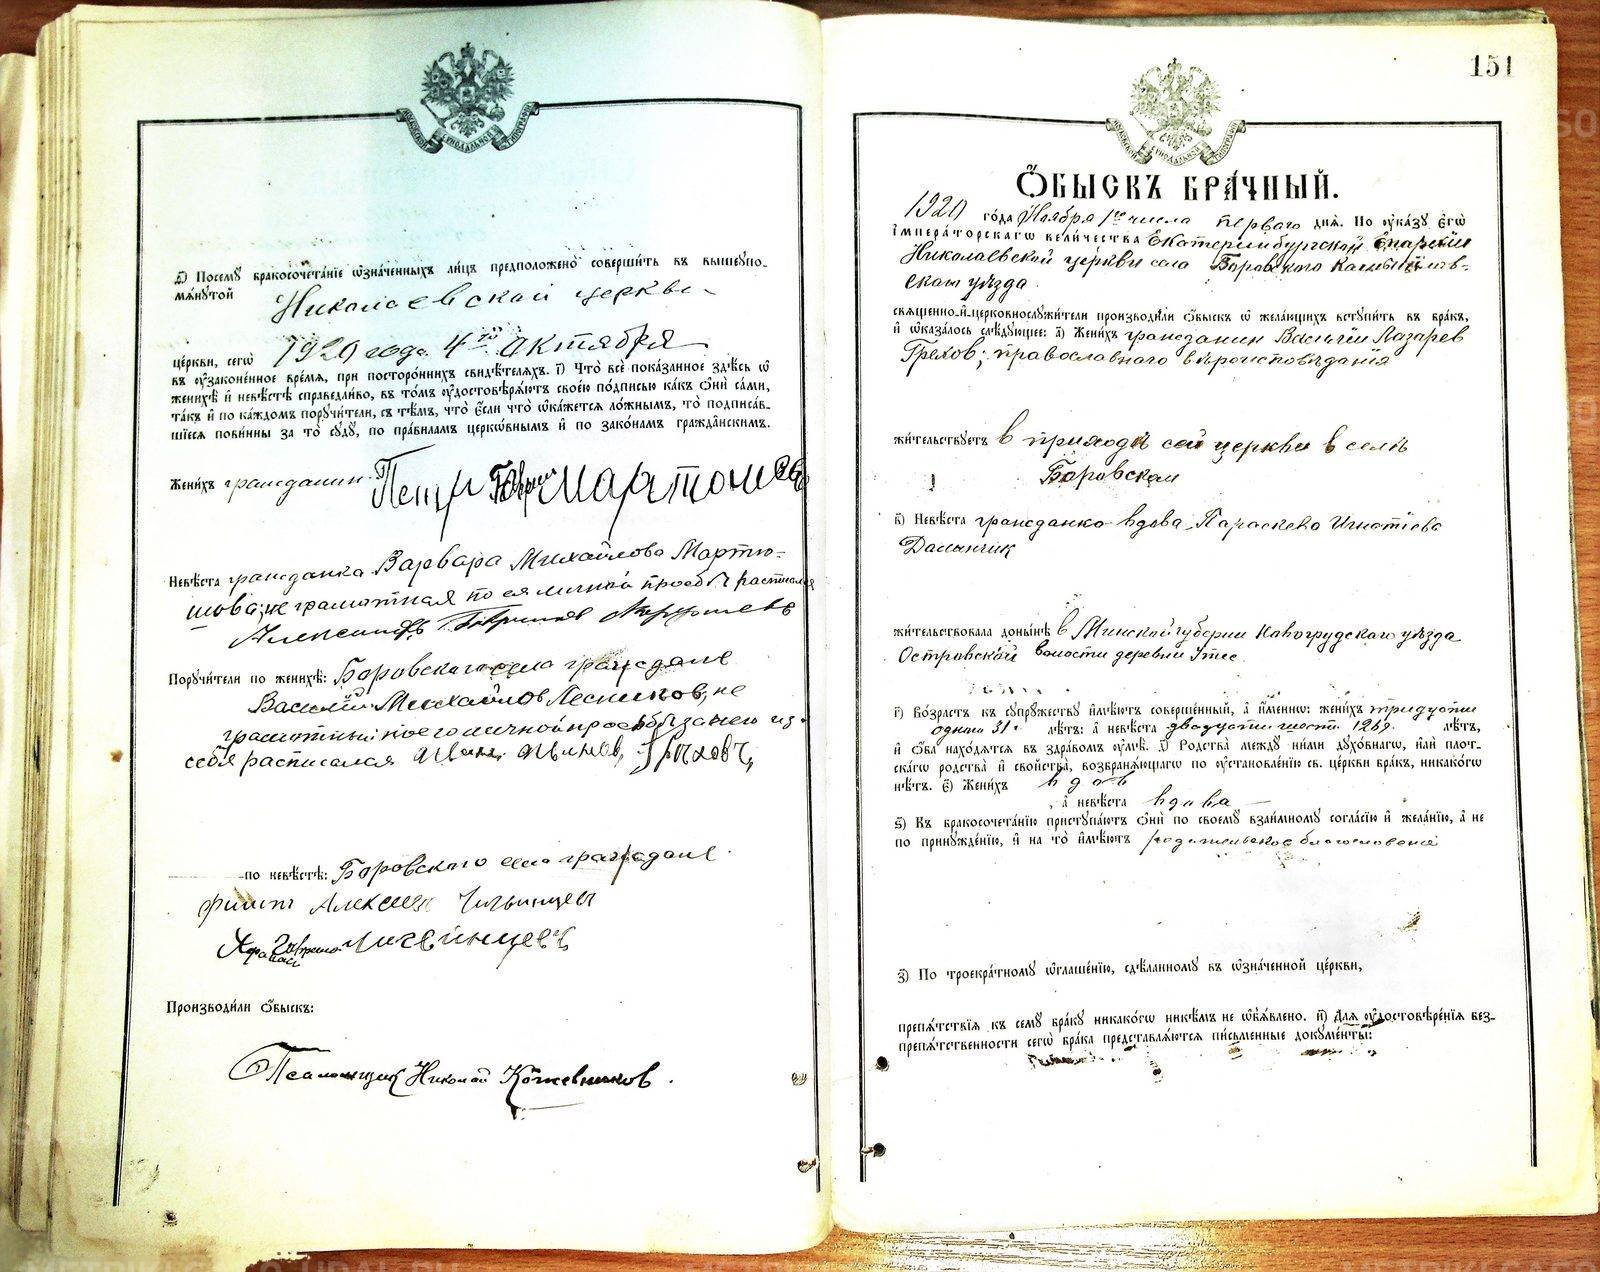 д) Посему бракосочетанїе ѡзначенныхъ лицъ предположено совершить въ вышеупо-
мѧнутой Николаевской церкви
церкви, сегѡ 1920 года 4го Октября
въ ᲂузаконенное времѧ, при постороннихъ свидѣтелѧхъ. г҃і) Что все показанное здѣсь ѡ
женихѣ и невѣстѣ справедливо, въ томъ ᲂудостовѣрѧютъ своею подписью какъ ѻни сами,
такъ и по каждомъ поручители, съ тѣмъ, что если что ѡкажетсѧ ложнымъ, то подписав-
шїесѧ повинны за то суду, по правиламъ церковнымъ и по законамъ гражданскимъ.
Женихъ гражданин Петр
Невѣста гражданка Варвара Михайлова Мартю-
шова, не грамотная по ея личной просьбѣ расписался
Александръ
Поручители по женихѣ: Боровского села граждане
Василий Михайлов Лесников, не
грамотный по его личной просьбы за него и за
себя расписался Иван
по невѣстѣ: Боровского села граждане
Алексеи
Производили ѻбыскъ:
Псаломщик Николай Кожевников.
151
Ѻбыскъ брачный.
1920 года Ноября 1го числа первого днѧ. По указу Егѡ
Императорскагѡ величества Екатеринбургской Епархии
Николаевской церкви села Боровского Камышлов-
скаго уѣзда
свѧщенно-и-церковнослужители производили ѻбыскъ ѡ желающихъ вступить въ бракъ,
и ѡказалось слѣдующее: а҃) Женихъ гражданин Василий Лазарев
Грехов, православного вѣроисповѣдания
жительствуетъ в приходѣ сей церкви в селѣ
Боровском
в҃) Невѣста гражданка вдова Параскева Игнатіева
жительствовала донынѣ в Минской губернии Новогрудского уѣзда
Островской волости деревни Утес
г҃) Возрастъ къ супружеству имѣютъ совершенный, а именно: женихъ тридцати
одного 31 лѣтъ: а невѣста двадцати шести 26 лѣтъ,
и ѻба находѧтсѧ въ здравомъ ᲂумѣ. д҃) Родства между ними духовнагѡ, или плот-
скагѡ родства и свойства, возбранѧющагѡ по ᲂустановленїю св. церкви бракъ, никакогѡ
нѣтъ. е҃) Женихъ вдов
, а невѣста вдова
ѕ҃) Къ бракосочетанїю приступаютъ ѻни по своему взаимному согласїю и желанїю, а не
по принужденїю, и на то имѣютъ родительское благословение
з҃) По троекратному ѡглашенїю, сдѣланному въ ѡзначенной церкви,
препѧтствїѧ къ сему браку никакогѡ никѣмъ не ѡбъѧвлено. и҃) Длѧ ᲂудостовѣренїѧ без-
препѧтственности сегѡ брака представлѧютсѧ письменные документы: